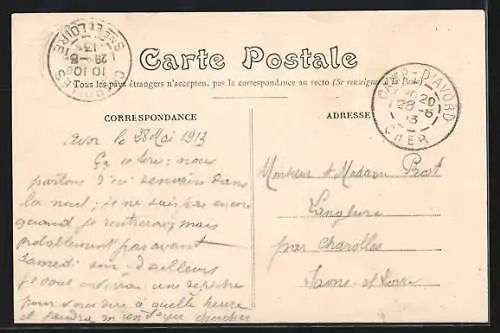 Carte Postale
Tous les pays étrangers n'acceptent pas la correspondance au recto (Se renseigner à la Poste)
CORRESPONDANCE
ADRESSE
CAMP-D'AVORD
28-5
13
CHER
CHAROLLES
SNE-ET-LOIRE
10
29-5
13
Avor le 28 Mai 1913
nous
partons d'ici demain dans
la nuit; je ne sais pas encore
quand je rentrerai, mais
probablement pas avant
Samedi soir, d'ailleurs
je vous enverrai une dépêche
pour vous dire à quelle heure
il faudra m'envoyer chercher
Monsieur et Madame
par Charolles
Saône-et-Loire